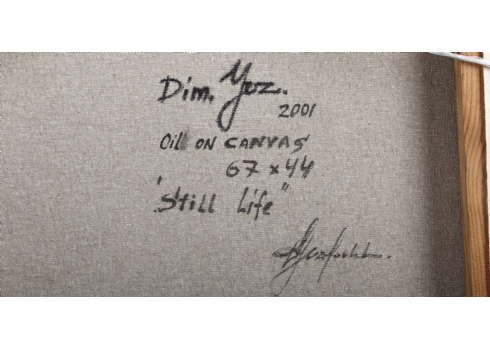 Dim. Yuz.
2001
Oil on CANVAS
67 x 44
"Still Life"